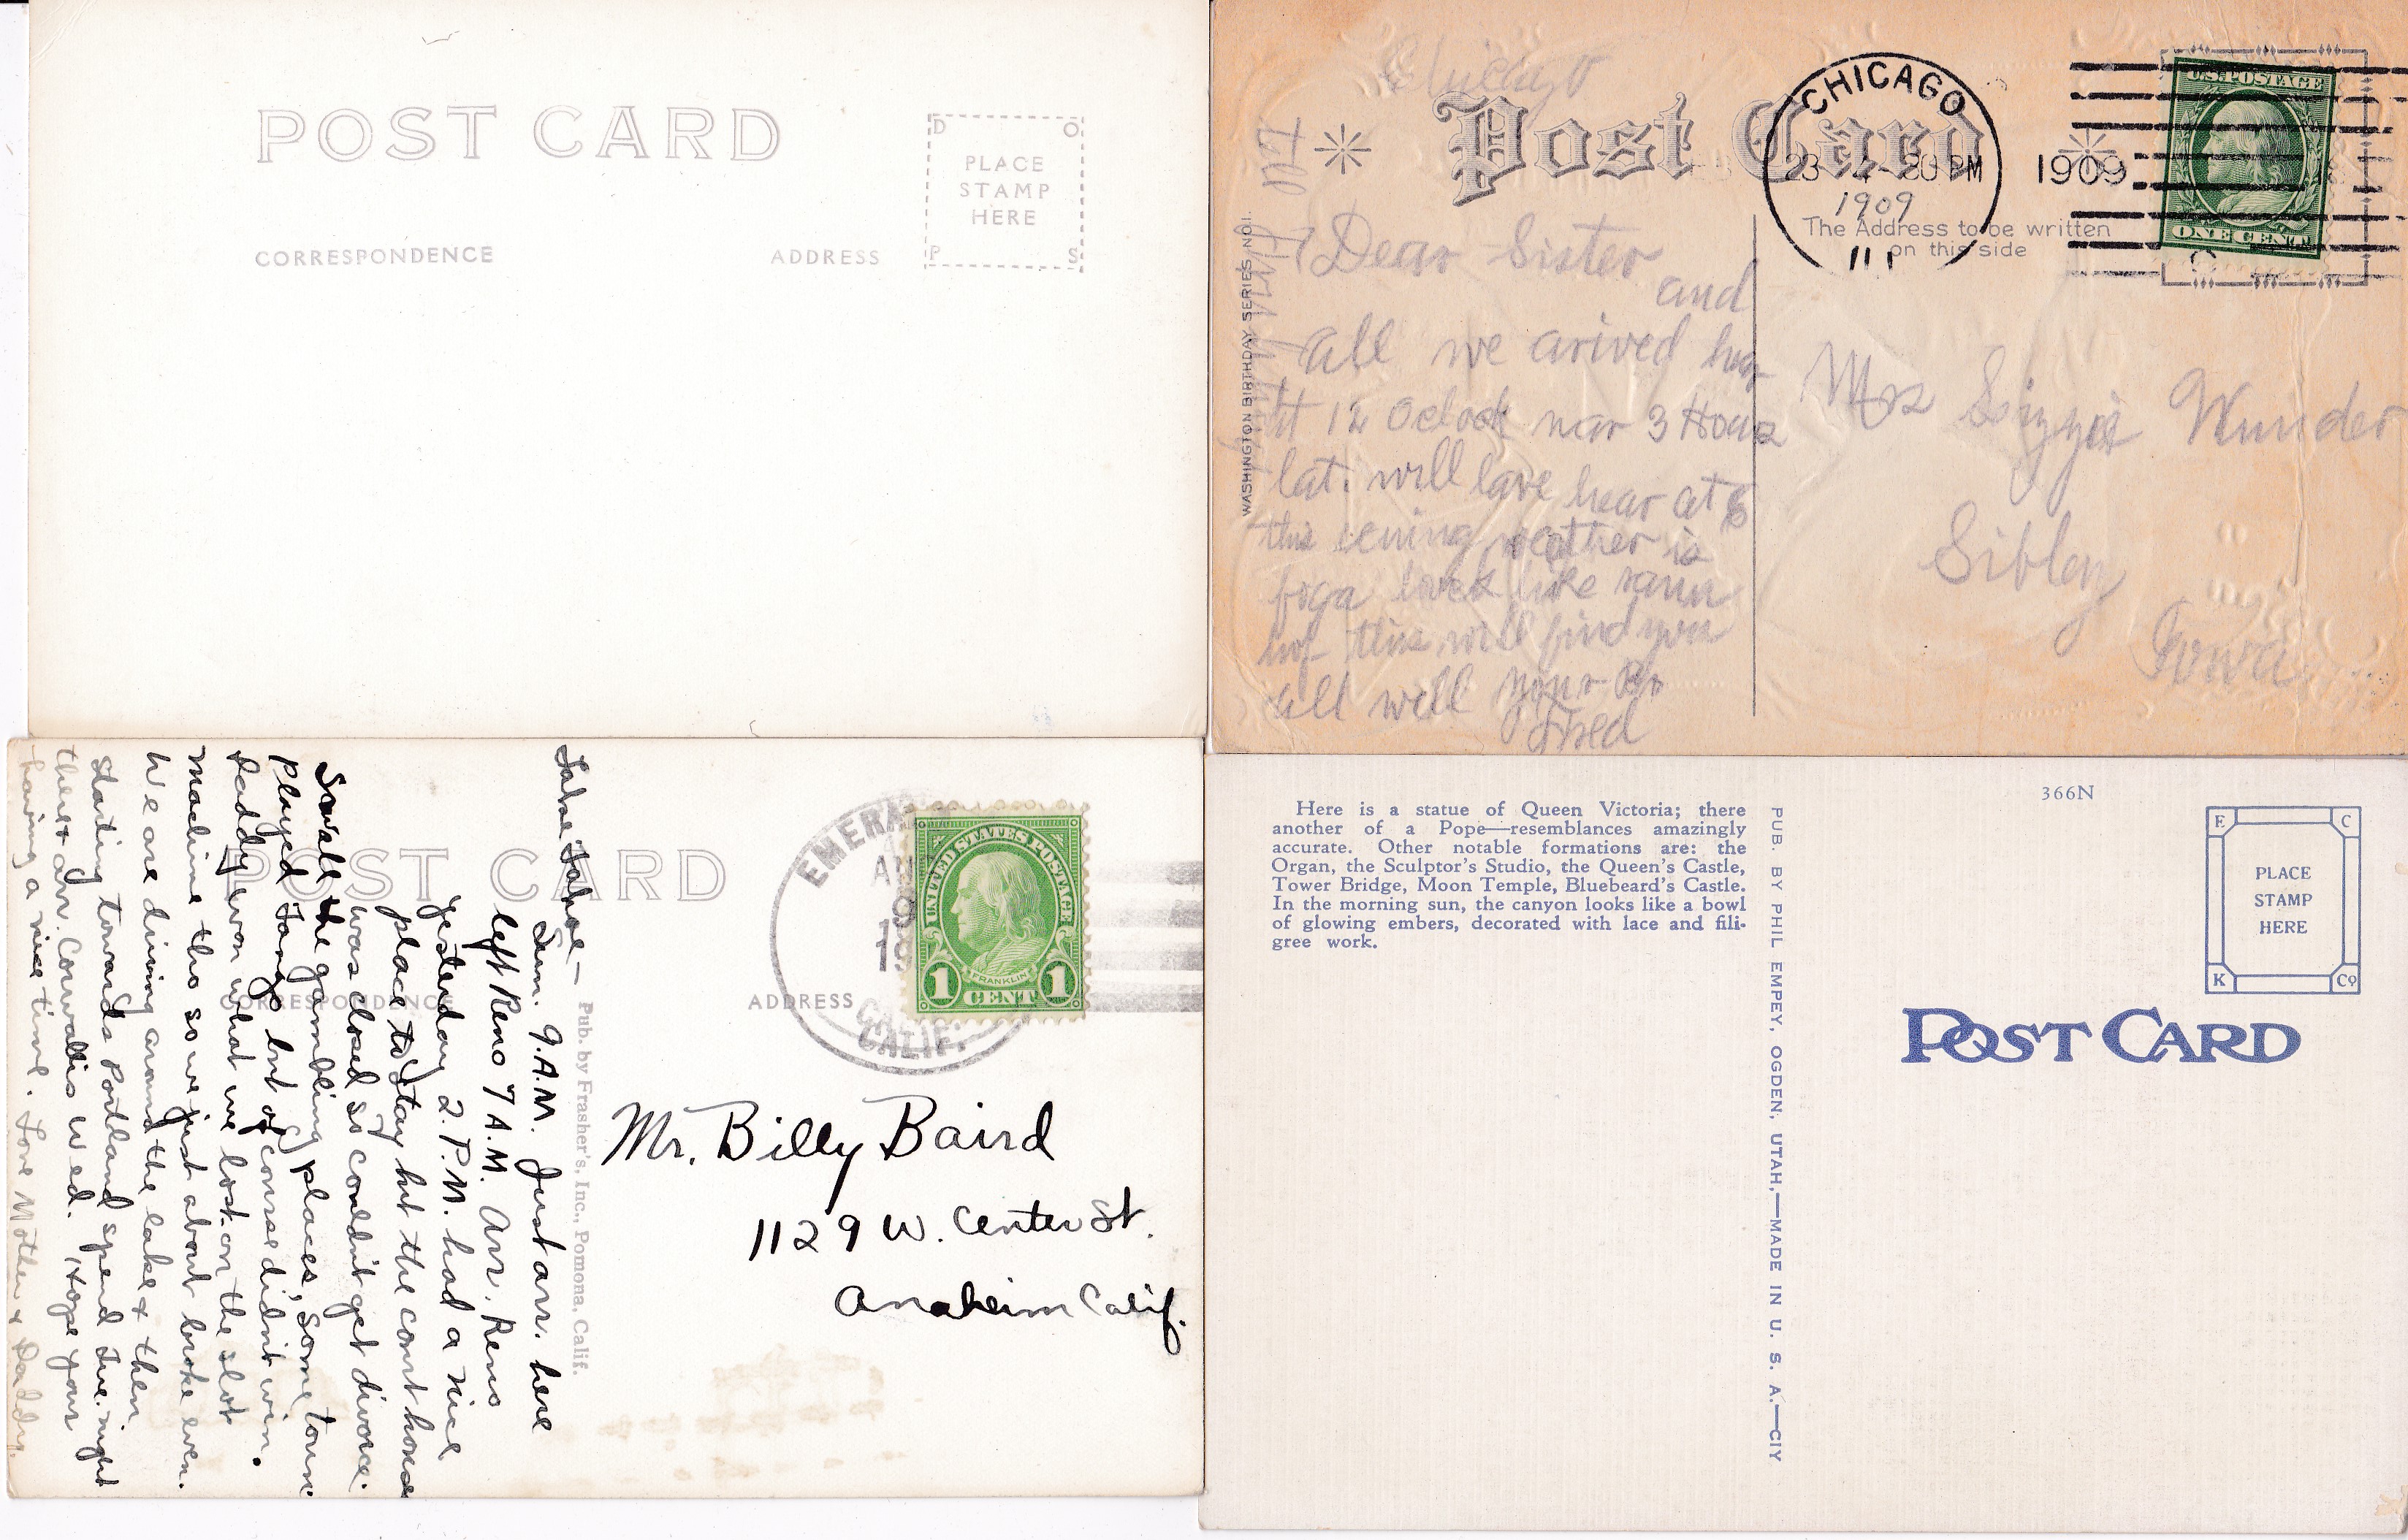 POST CARD
D O
PLACE
STAMP
HERE
P S
CORRESPONDENCE
ADDRESS
Chicago
Post Card
CHICAGO
1909
1909
U.S. POSTAGE
ONE CENT
The Address to be written
on this side
WASHINGTON BIRTHDAY SERIES NO.
Dear Sister
and
all we arived hear
at 12 Oclock near 3 Hours
lat. will lave hear at 6
this evning weather is
foga looks like rain
hop this will find you
all well your Br
Fred
Mrs Lizzie Wunder
Sibley
Iowa
POST CARD
CORRESPONDENCE
ADDRESS
CALIF.
UNITED STATES POSTAGE
FRANKLIN
1 CENT 1
Pub. by Frasher's, Inc., Pomona, Calif.
Lake Tahoe —
Sun. 9.A.M. Just arr. here
left Reno 7 A.M. Arr. Reno
yesterday 2. P.M. had a nice
place to stay but the court house
was closed so couldn't get divorce.
Saw all the gambling places, some town
played Tango but of course didn't win.
Daddy won what we lost on the slot
machine tho so we just about broke even.
We are driving around the lake & then
starting towards Portland spend Tue. night
there & arr. Corvallis Wed. Hope your
having a nice time. Love Mother & Daddy.
Mr. Billy Baird
1129 W. Center St.
Anaheim Calif
Here is a statue of Queen Victoria; there
another of a Pope—resemblances amazingly
accurate. Other notable formations are: the
Organ, the Sculptor's Studio, the Queen's Castle,
Tower Bridge, Moon Temple, Bluebeard's Castle.
In the morning sun, the canyon looks like a bowl
of glowing embers, decorated with lace and fili-
gree work.
PUB. BY PHIL EMPEY, OGDEN, UTAH,—MADE IN U. S. A.—CIY
366N
E C
PLACE
STAMP
HERE
K Co
POST CARD